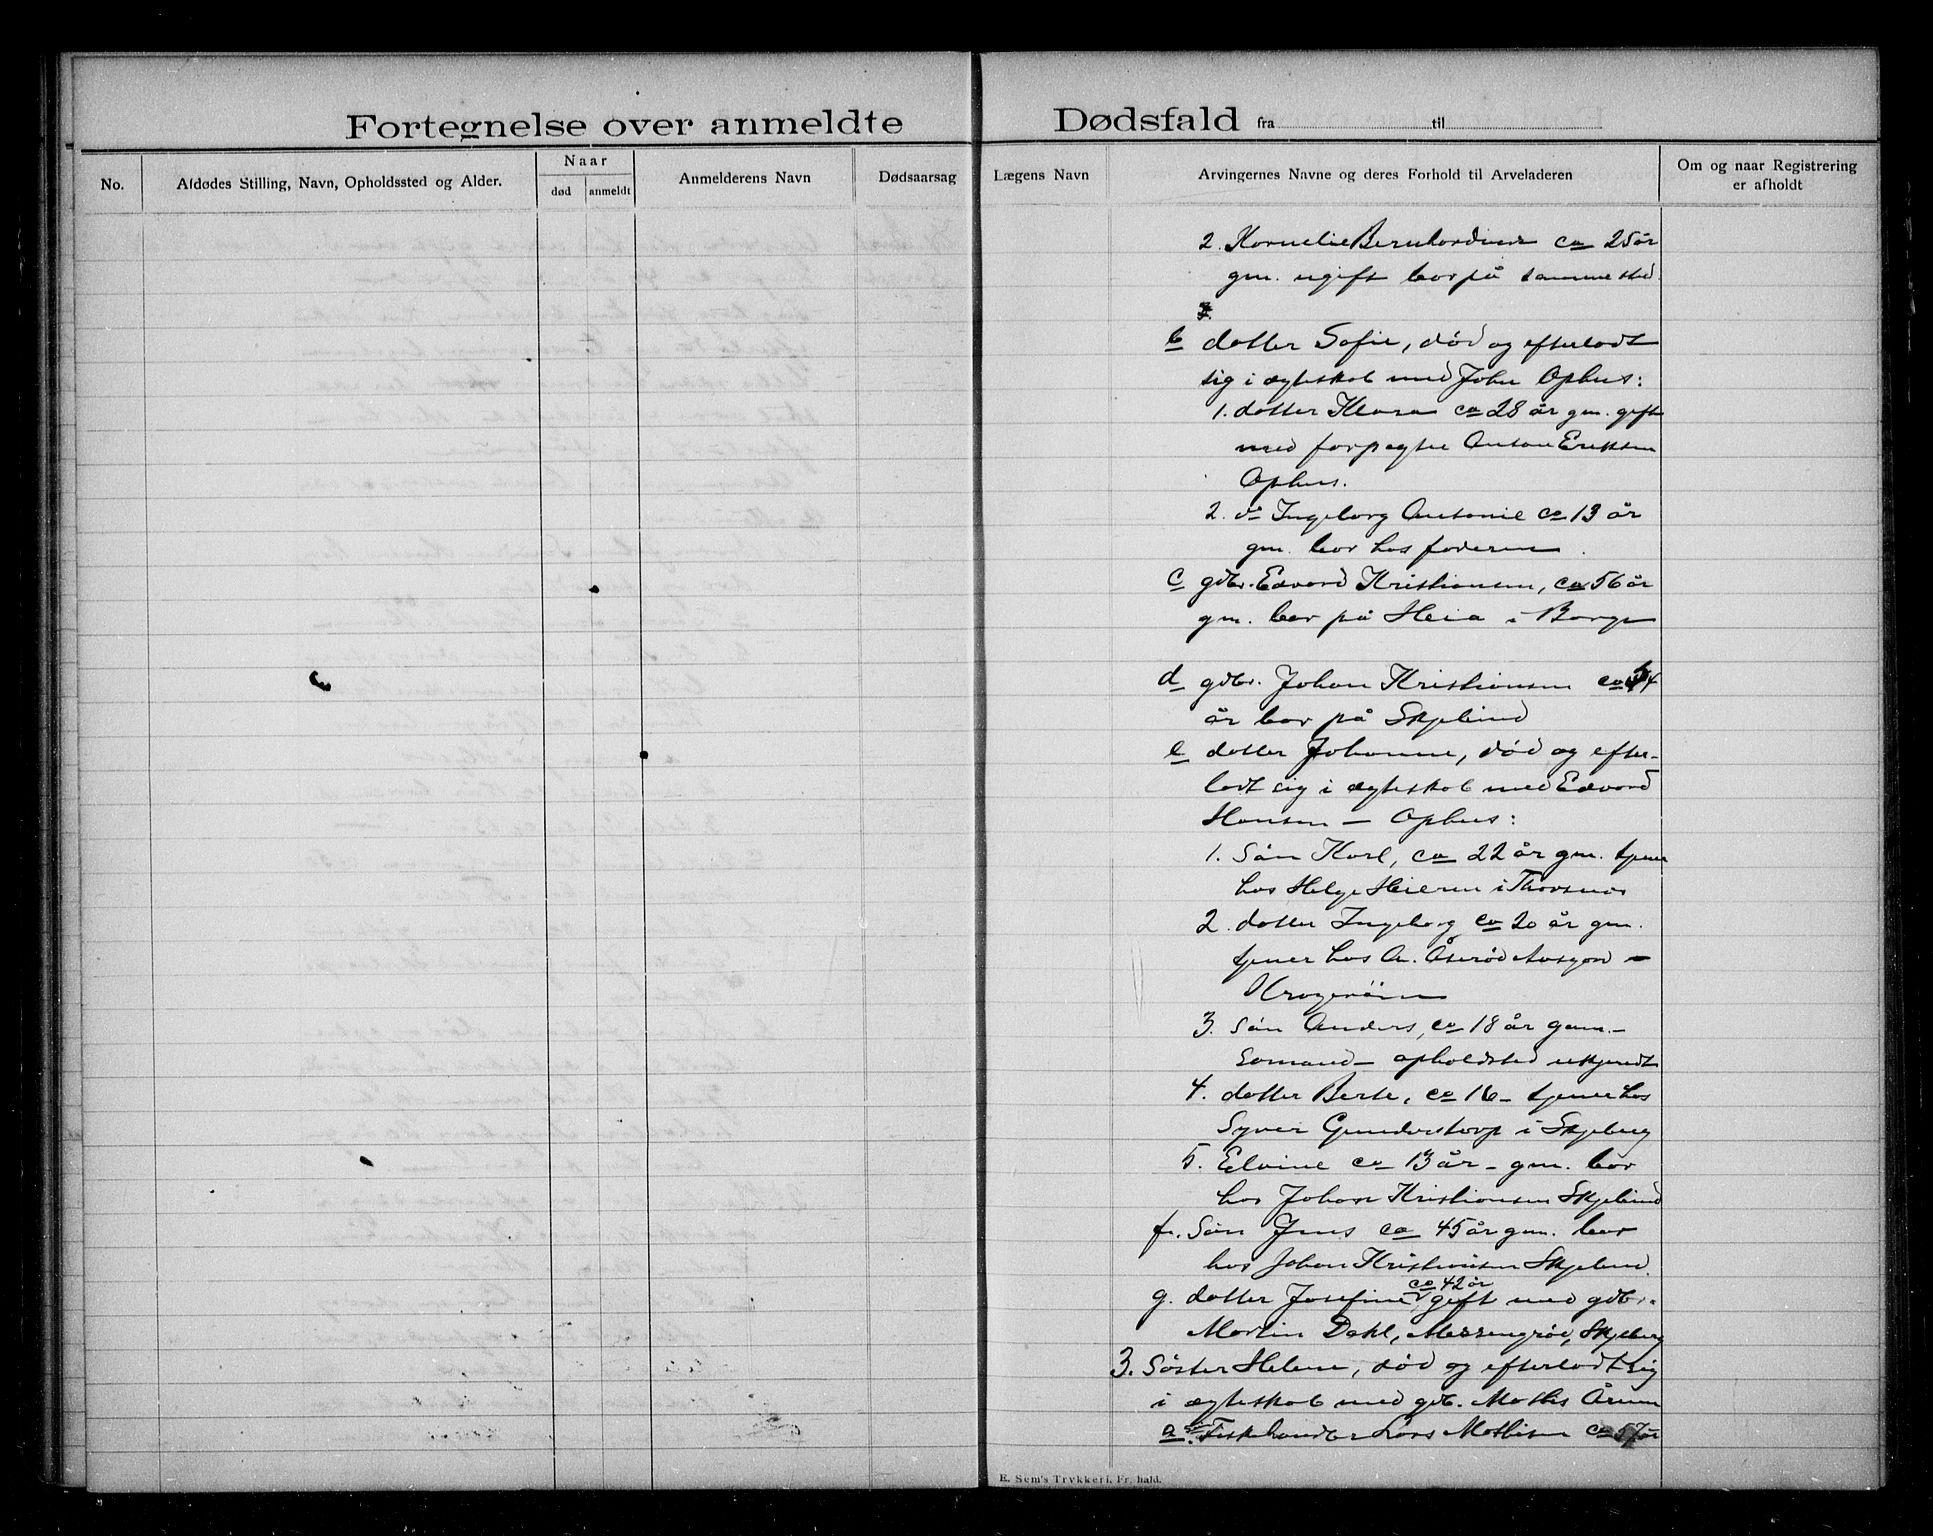 Fortegnelse over anmeldte
Dødsfald fra til
No.
Afdødes Stilling, Navn, Opholdssted og Alder.
Naar
død
anmeldt
Anmelderens Navn
Dødsaarsag
Lægens Navn
Arvingernes Navne og deres Forhold til Arveladeren
Om og naar Registrering
er afholdt
2. Kornelie Bernhardine ca 25 år
gm. ugift bor på samme sted.
b dotter Sofie, död og efterlodt
sig i ægteskab med John Ophus:
1. dotter Klara ca 28 år gm. gift
med forpagter Anton Eriksen
Ophus.
2. do Ingeborg Antonie ca 13 år
gm. bor hos faderen.
c gdbr. Edvard Kristiansen, ca 56 år
gm. bor på Heia i Borge
d gdbr. Johan Kristiansen ca 54
år bor på Skjelind
e dotter Johanne, död og efter-
lodt sig i ægteskab med Edvard
Hansen – Ophus:
1. Sön Karl, ca 22 år gm. tjener
hos Helge Heieren i Thorsnæs
2. dotter Ingeborg ca 20 år gm.
tjener hos A. Åseröd –
Krogeröen
3. Sön Anders, ca 18 år gam. –
Sömand – opholdsted ukjendt
4. dotter Berte, ca 16 – tjener hos
Syver Gunderstorp i Skjeberg
5. Elvine ca 13 år – gm. bor
hos Johan Kristiansen Skjelind
f. Sön Jens ca 45 år gm. bor
hos Johan Kristiansen Skjelind.
g. dotter Josefine ca 42 år gift med gdbr.
Martin Dahl, Messengröd, Skjeberg
3. Söster Helene, död og efterlodt sig
i ægteskab med gdb. Mathis Årum
a. Fiskehandler Lars Mathisen ca 57 år
E. Sem's Trykkeri, Fr.hald.